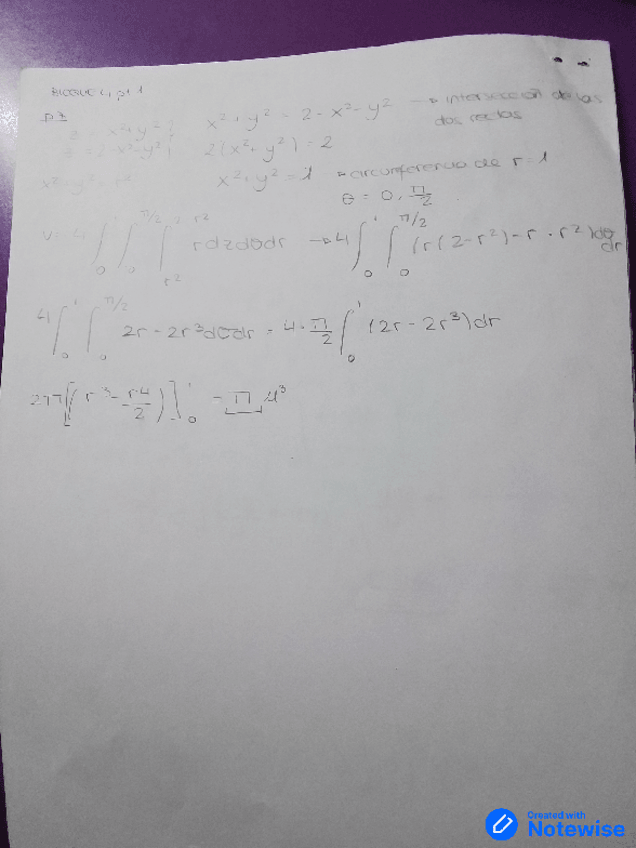 Bloque 4, pt 1
p7
z = x² + y² x² + y² = 2 - x² - y² → intersección de las
dos rectas
z = 2 - x² - y² 2(x² + y²) = 2
x² + y² = r² x² + y² = 1 → circunferencia de r = 1
θ = 0, π/2
V = 4 ∫₀¹ ∫₀^π/2 ∫_r² r² r dz dθ dr → 4 ∫₀¹ ∫₀^π/2 (r(2 - r²) - r · r²) dθ
dr
4 ∫₀¹ ∫₀^π/2 2r - 2r³ dθ dr = 4 · π/2 ∫₀¹ (2r - 2r³) dr
2π [(r² - r⁴/2)]₀¹ = π u³
Created with
Notewise